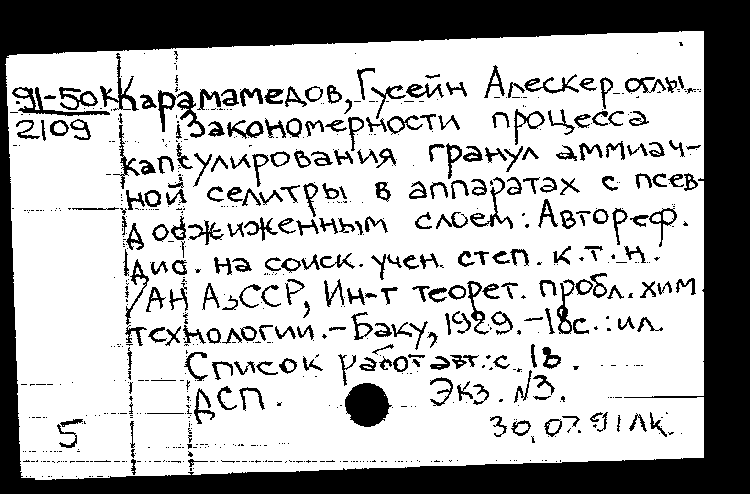 91-50к Карамамедов, Гусейн Алескер оглы.
2109 Закономерности процесса
капсулирования гранул аммиач-
ной селитры в аппаратах с псев-
доожиженным слоем: Автореф.
Дис. на соиск. учен. степ. к.т.н.
/АН АзССР, Ин-т теорет. пробл. хим.
технологии. - Баку, 1989. - 18с.: ил.
Список работ авт.: с. 18.
ДСП. Экз. №3.
5 30.07.91 ЛК